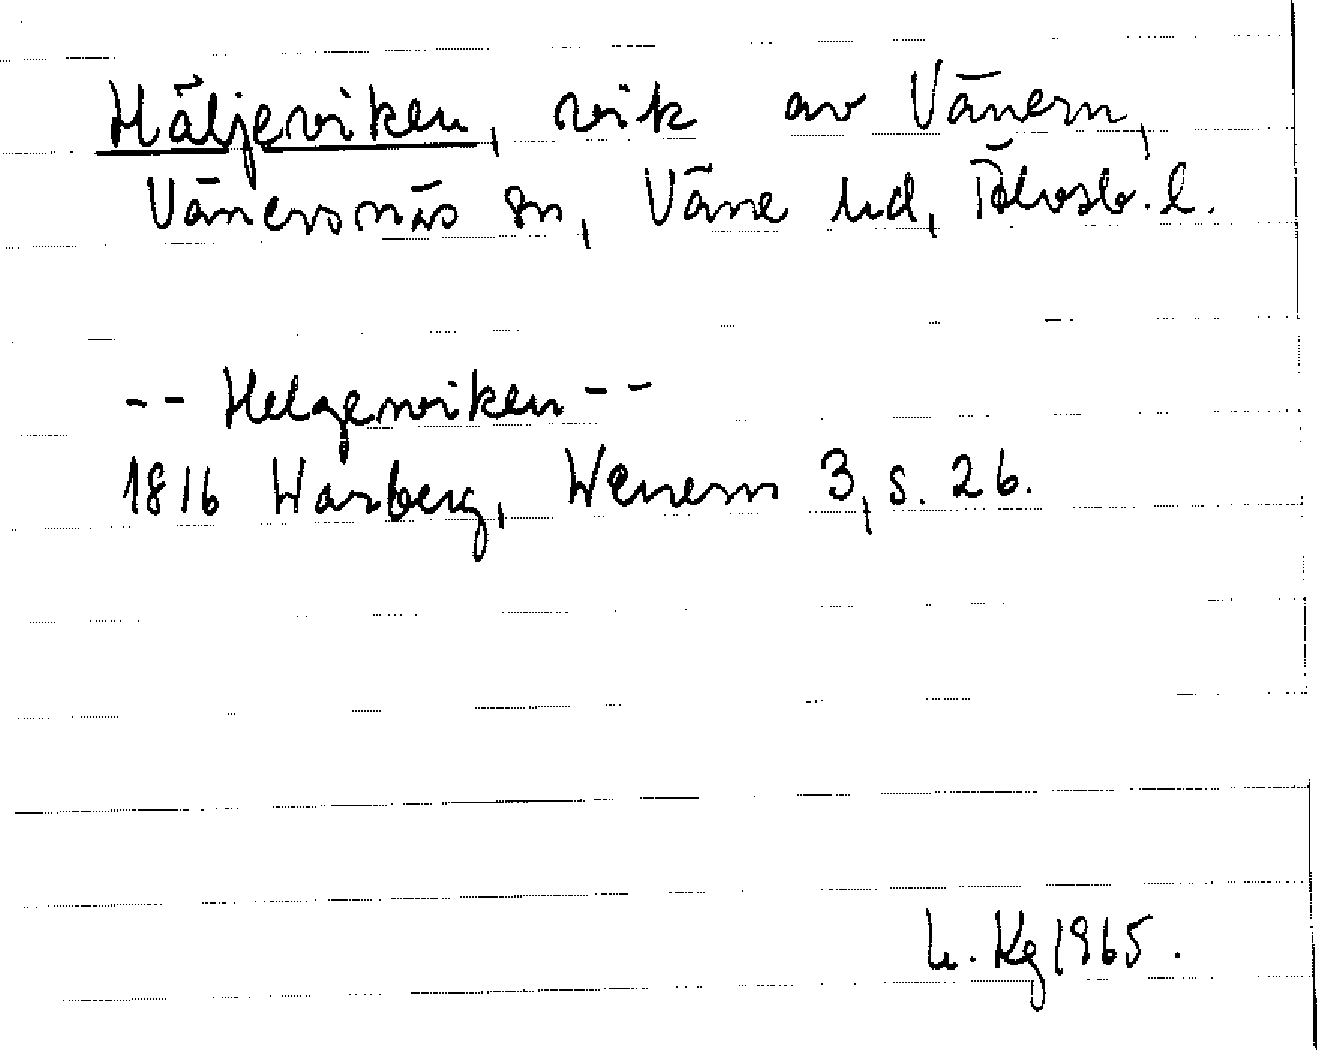 Häljeviken, vik av Vänern,
Vänersnäs sn, Väne hd, Älvsb. l.
-- Helgeviken --
1816 Warberg, Wenern 3, s. 26.
h. Kg 1965.